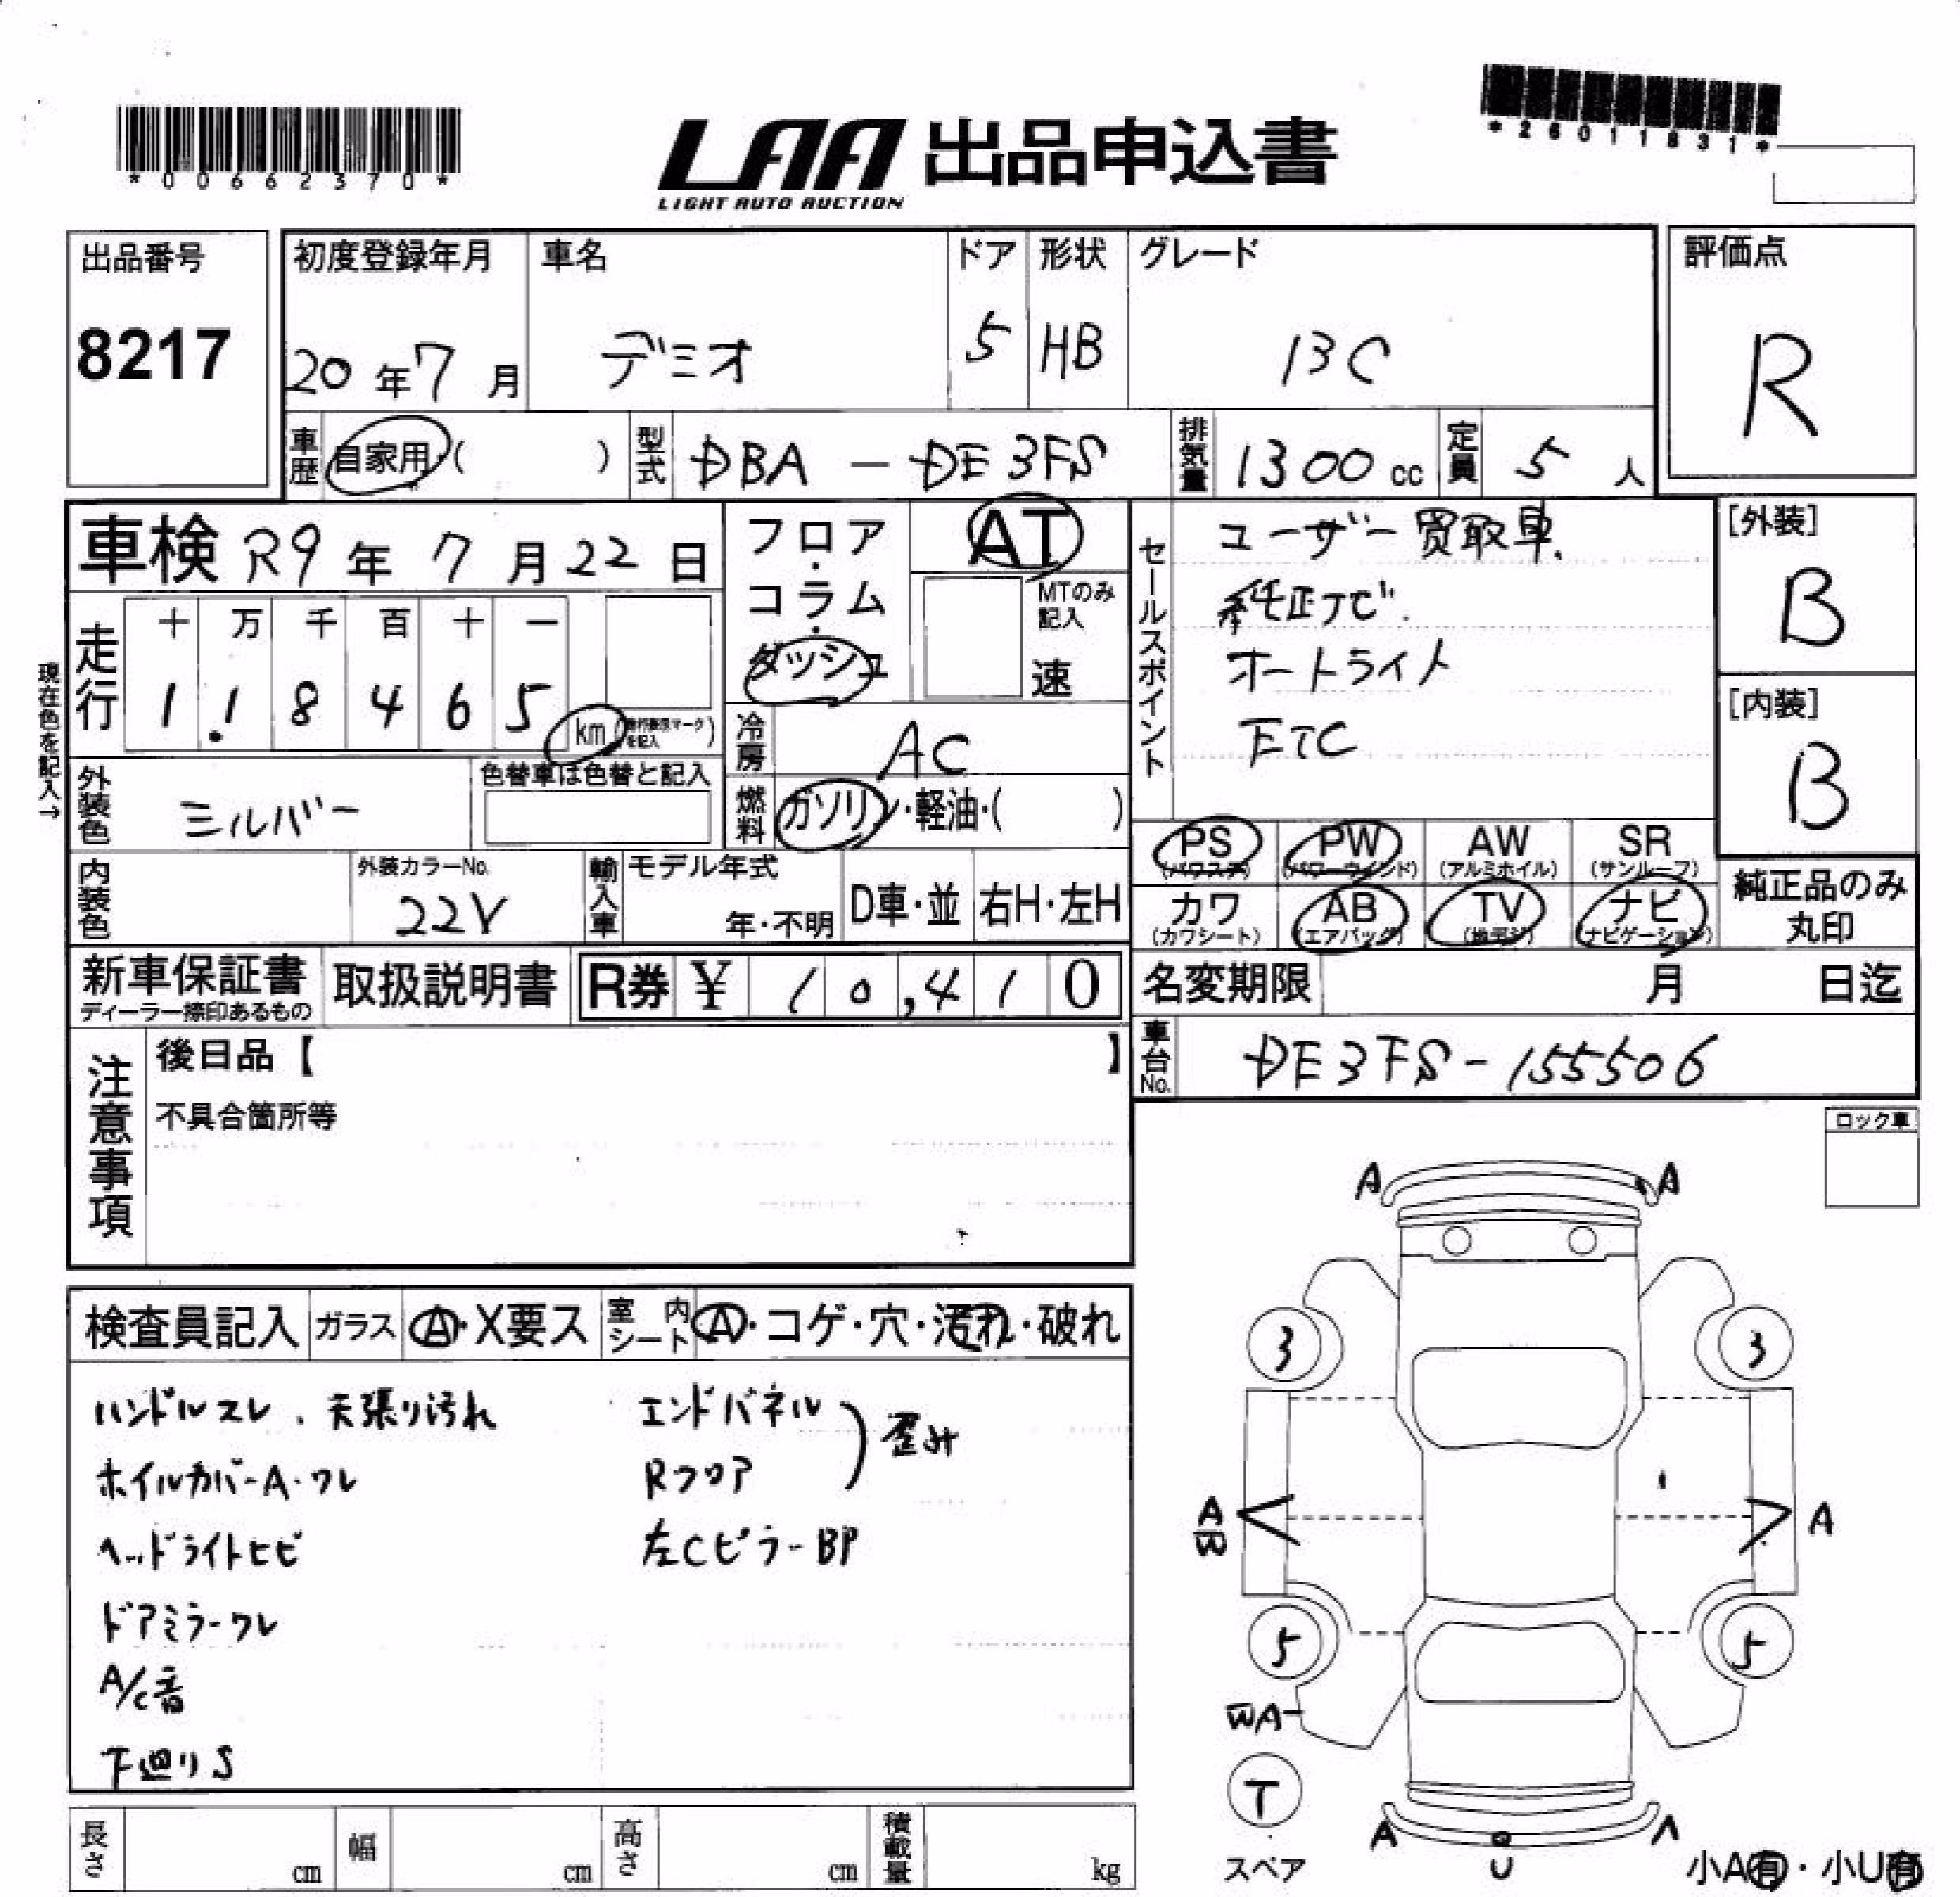 *00662370*
LAA 出品申込書
LIGHT AUTO AUCTION
*26011831*
出品番号
8217
初度登録年月
20年7月
車名
デミオ
ドア
5
形状
HB
グレード
13C
評価点
R
車歴 自家用( )
型式 DBA-DE3FS
排気量 1300cc
定員 5人
車検 R9年7月22日
フロア・コラム・ダッシュ
AT
MTのみ記入
速
セールスポイント
ユーザー買取車.
純正ナビ.
オートライト
ETC
[外装]
B
[内装]
B
現在色を記入→
走行
十 万 千 百 十 一
1 1 8 4 6 5 km
冷房 AC
外装色 シルバー
色替車は色替と記入
燃料 ガソリン・軽油・( )
PS (パワステ) PW (パワーウインド) AW (アルミホイル) SR (サンルーフ)
カワ (カワシート) AB (エアバッグ) TV (地デジ) ナビ (ナビゲーション)
純正品のみ丸印
内装色
外装カラーNo.
22V
輸入車 モデル年式 年・不明 D車・並 右H・左H
新車保証書
ディーラー捺印あるもの
取扱説明書
R券 ¥ 10,410
名変期限 月 日迄
車台No. DE3FS-155506
注意事項
後日品【 】
不具合箇所等
ロック車
検査員記入 ガラス A・X要ス 室内シート A・コゲ・穴・汚れ・破れ
ハンドルスレ、天張り汚れ
ホイルカバーA・ワレ
ヘッドライトヒビ
ドアミラーワレ
A/C音
下廻りS
エンドパネル
Rフロア
歪み
左CピラーBP
A A
3 3
A
B
A
5 5
WA
T
スペア
A U A
小A有・小U有
長さ cm 幅 cm 高さ cm 積載量 kg